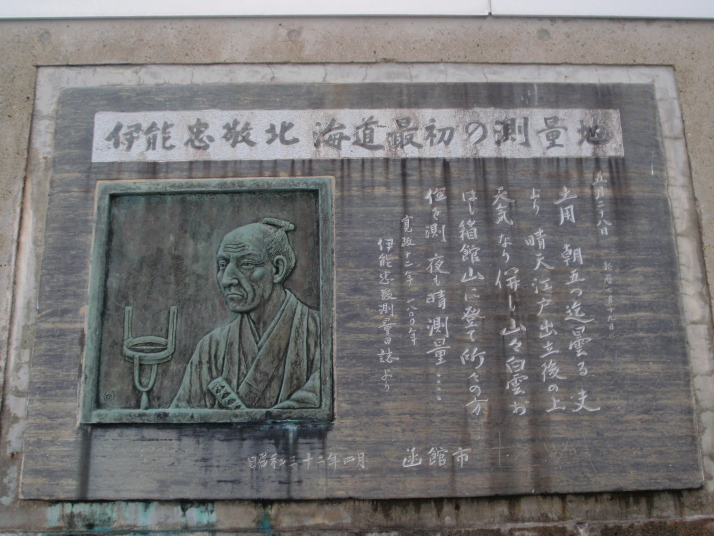 伊能忠敬北海道最初の測量地
五月二十八日
土用 朝五つ迄曇る 夫
より 晴天江戸出立後の上
天気なり 併し山々白雲お
ほし箱館山に登て所々の方
位を測 夜も晴測量
寛政十二年 一八〇〇年
伊能忠敬測量日誌より
昭和三十二年四月 函館市